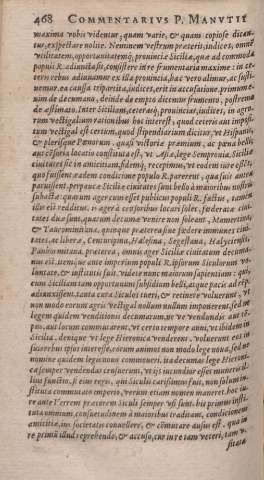 468 COMMENTARIVS P. MANVTII
maxima vobis videntur, quàm varie, & quàm copiose dican-
tur, expectare nolite. Neminem vestrum præterit, iudices, omnem
vtilitatem, opportunitatemq; prouinciæ Siciliæ, quæ ad commoda
populi R. adiuncta sit, consistere in re frumentaria maxime: nam ce-
teris rebus adiuuamur ex illa prouincia, hac vero alimur, ac susti-
nemur. ea caussa tripartita, iudices, erit in accusatione. primum e-
nim de decumano, deinde de empto dicemus frumento, postremo
de æstimato. Inter Siciliam, ceterasq; prouincias, iudices, in agro-
rum vectigalium rationibus hoc interest, quod ceteris aut imposi-
tum vectigal est certum, quod stipendiarium dicitur, vt Hispanis,
& plerisque Pœnorum, quasi victoriæ præmium, ac pœna belli:
aut censoria locatio constituta est, vt Asiæ, lege Sempronia. Siciliæ
ciuitates sic in amicitiam, fidemq; recepimus, vt eodem iure essent,
quo fuissent: eadem condicione populo R. parerent, qua suis antea
paruissent. perpaucæ Siciliæ ciuitates sunt bello à maioribus nostris
subactæ: quarum ager cum esset publicus populi R. factus, tamen
illis est redditus. is ager à censoribus locari solet. fœderatæ ciui-
tates duæ sunt, quarum decumæ venire non soleant, Mamertina,
& Tauromitana. quinque præterea sine fœdere immunes ciui-
tates, ac liberæ, Centuripina, Halesina, Segestana, Halyciensis,
Panhormitana. præterea, omnis ager Siciliæ ciuitatum decuma-
nus est, itemq; ante imperium populi R. ipsorum Siculorum vo-
luntate, & institutis fuit. videte nunc maiorum sapientiam: qui,
cum Siciliam tam opportunum subsidium belli, atque pacis ad remp.
adiunxissent, tanta cura Siculos tueri, & retinere voluerunt, vt
non modo eorum agris vectigal nouum nullum imponerent, sed ne
legem quidem venditionis decumarum, ne ve vendundi aut tem-
pus, aut locum commutarent, vt certo tempore anni, vt ibidem in
Sicilia, denique vt lege Hieronica venderent. voluerunt eos in
suis rebus ipsos interesse, eorum animos non modo lege noua, sed ne
nomine quidem legis nouo commoueri. ita decumas lege Hieroni-
ca semper vendendas censuerunt, vt iis iucundior esset muneris il-
lius functio, si eius regis, qui Siculis carissimus fuit, non solum in-
stituta commutato imperio, verum etiam nomen maneret. hoc iu-
re ante Verrem prætorem Siculi semper vsi sunt. hic primus insti-
tuta omnium, consuetudinem à maioribus traditam, condicionem
amicitiæ, ius societatis conuellere, & commutare ausus est. qua in
re primum illud reprehendo, & accuso, cur in re tam veteri, tam v-
sitata